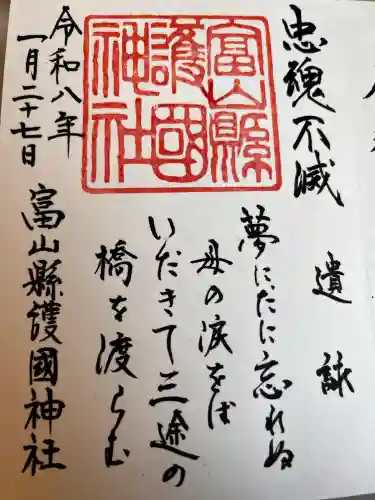 忠魂不滅
遺詠
夢にだに忘れぬ
母の涙をば
いだきて三途の
橋を渡らむ
富山縣
護國
神社
令和八年
一月二十七日
富山縣護國神社